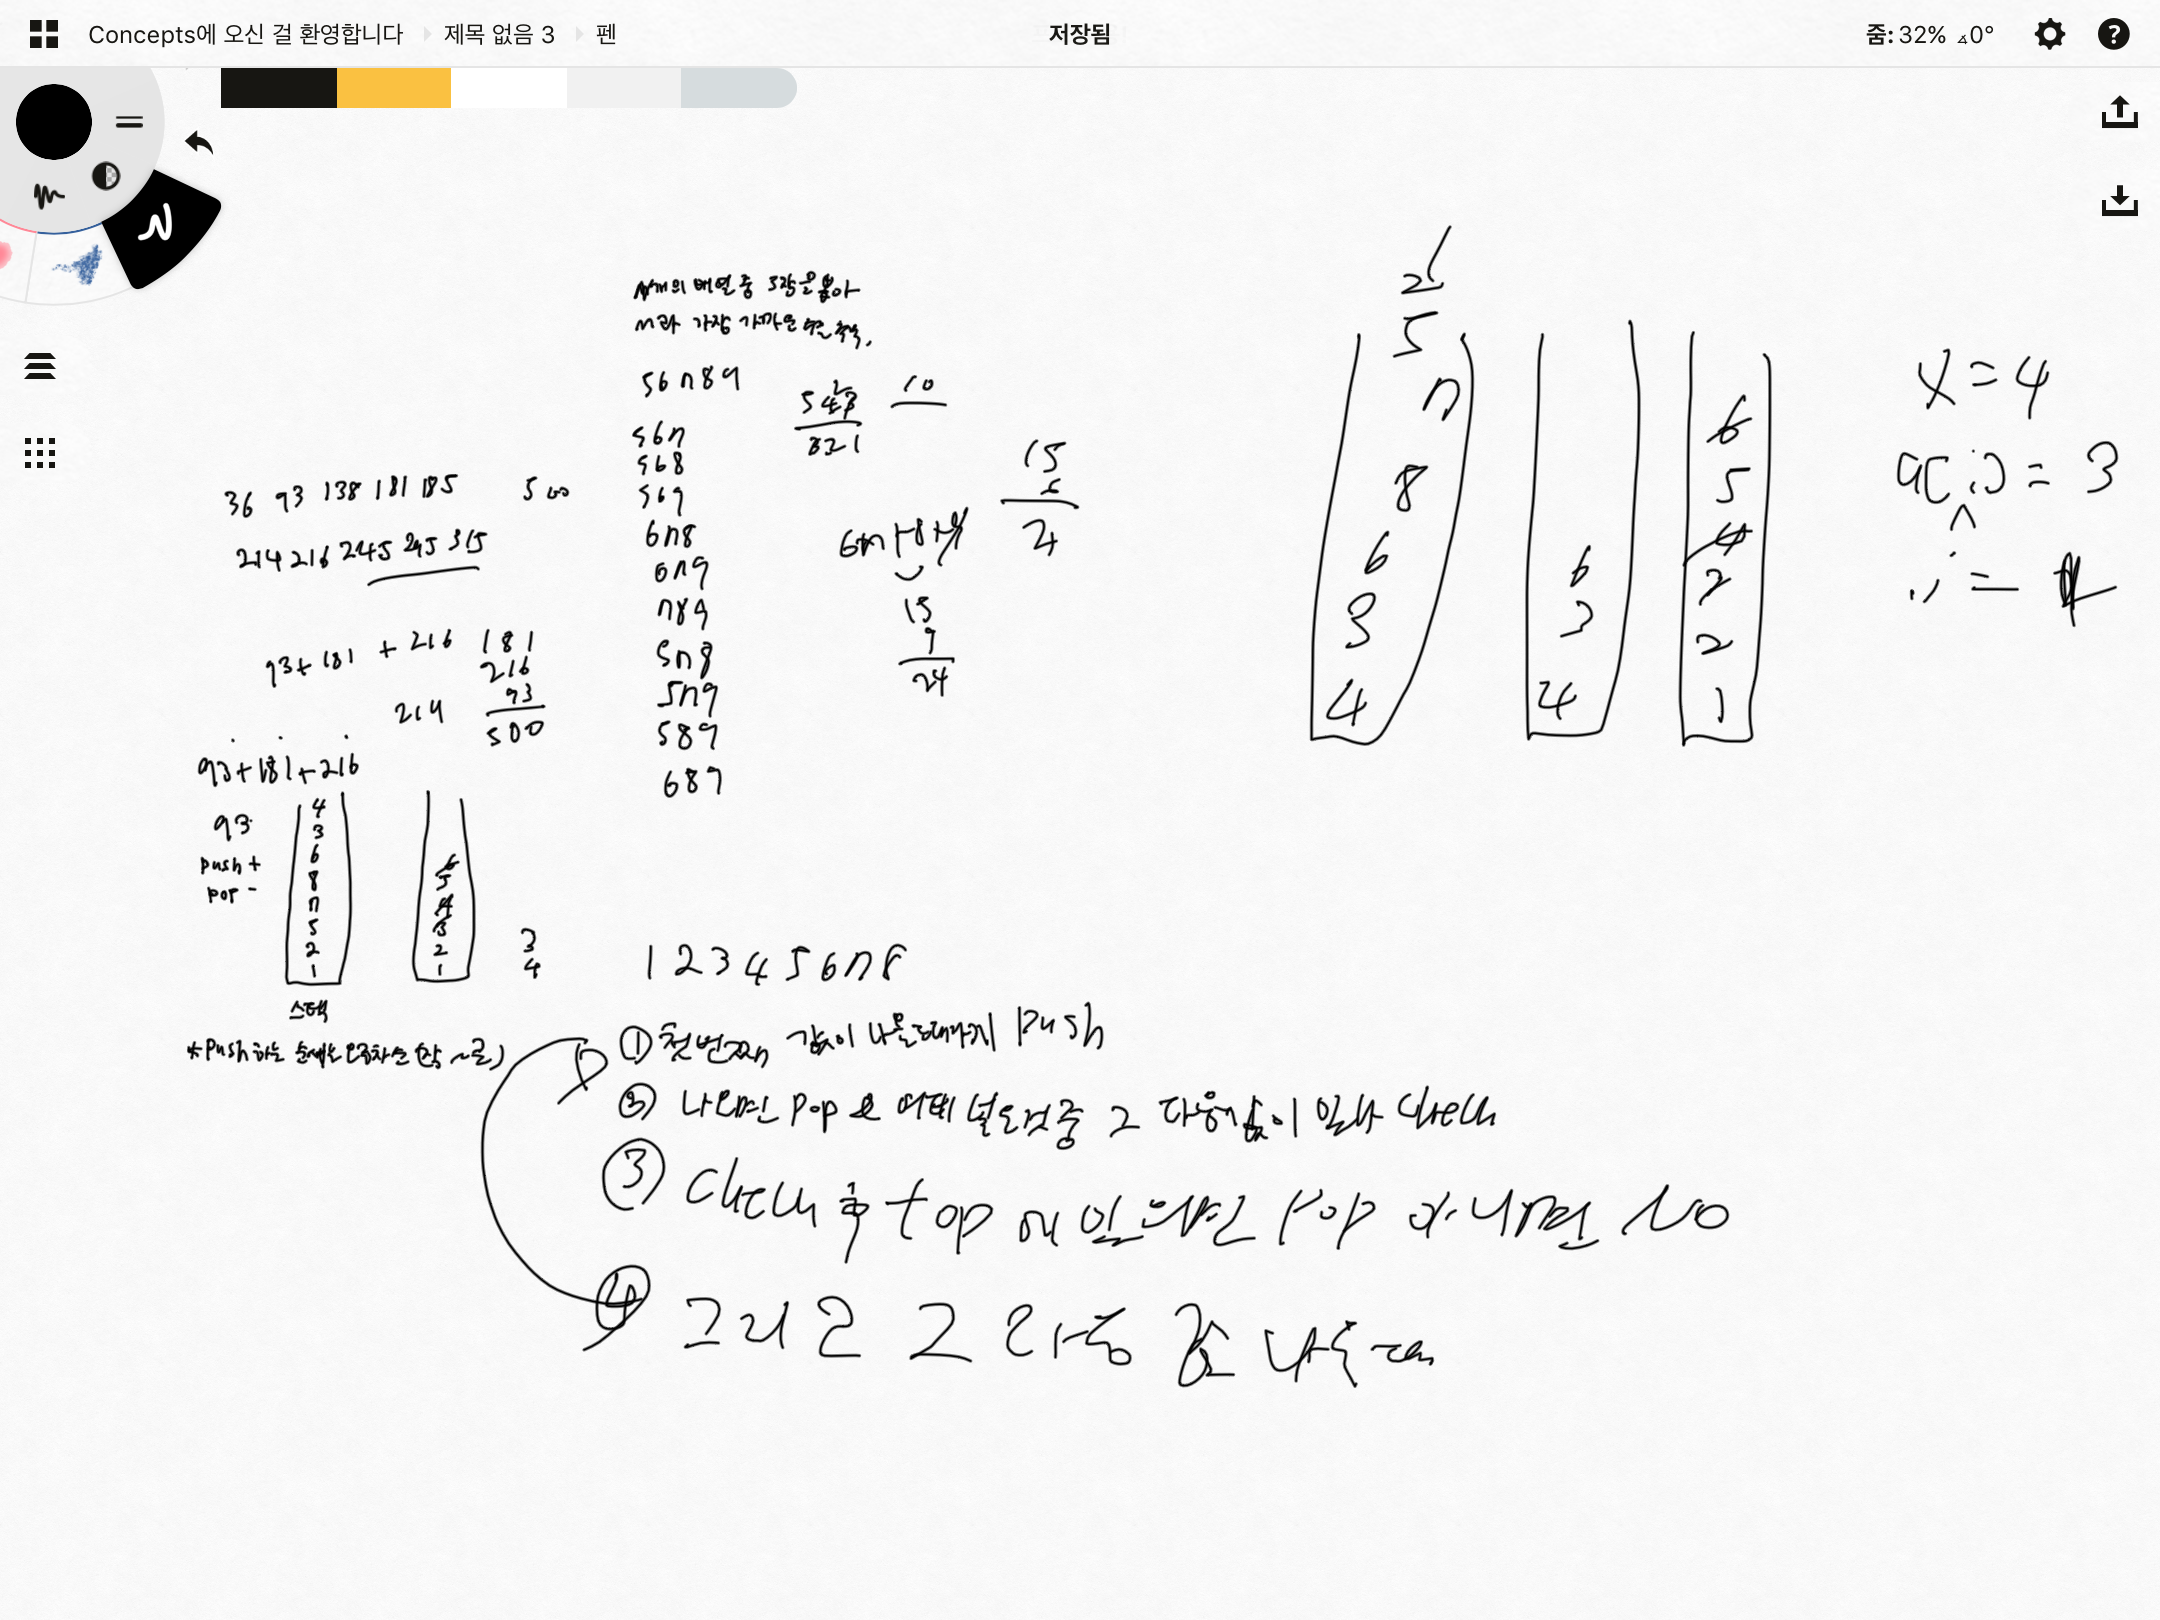 Concepts에 오신 걸 환영합니다
제목 없음 3
펜
저장됨
줌: 32% ⦟0°
배열 중 3장을 뽑아
M과 가장 가까운
5 6 7 8 9
5 6 7
5 6 8
5 6 9
6 7 8
6 7 9
7 8 9
5 7 8
5 7 9
5 8 9
6 8 9
10
321
15
6
21
15
9
24
36 93 138 181 185 500
214 216 245 295 315
93+ 181 + 216
214
181
216
93
500
93+181+216
93
push +
pop -
4
3
6
8
7
5
2
1
스택
6
5
4
3
2
1
3
4
*push 하는 순서는 오름차순
1 2 3 4 5 6 7 8
① 첫번째 값이 나올때까지 push
② 나오면 pop 그 다음값이 있나 check
③ check 후 top 에 있으면 pop 아니면 NO
④ 그리고 그 다음 값
2
5
7
8
6
3
4
6
3
4
6
5
4
2
2
1
x = 4
a[i] = 3